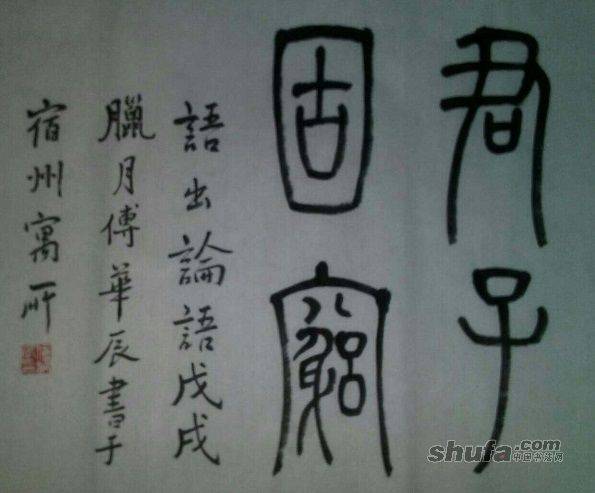 君子
固窮
語出論語戊戌
臘月傅華辰書于
宿州寓所
shufa.com
中国书法网